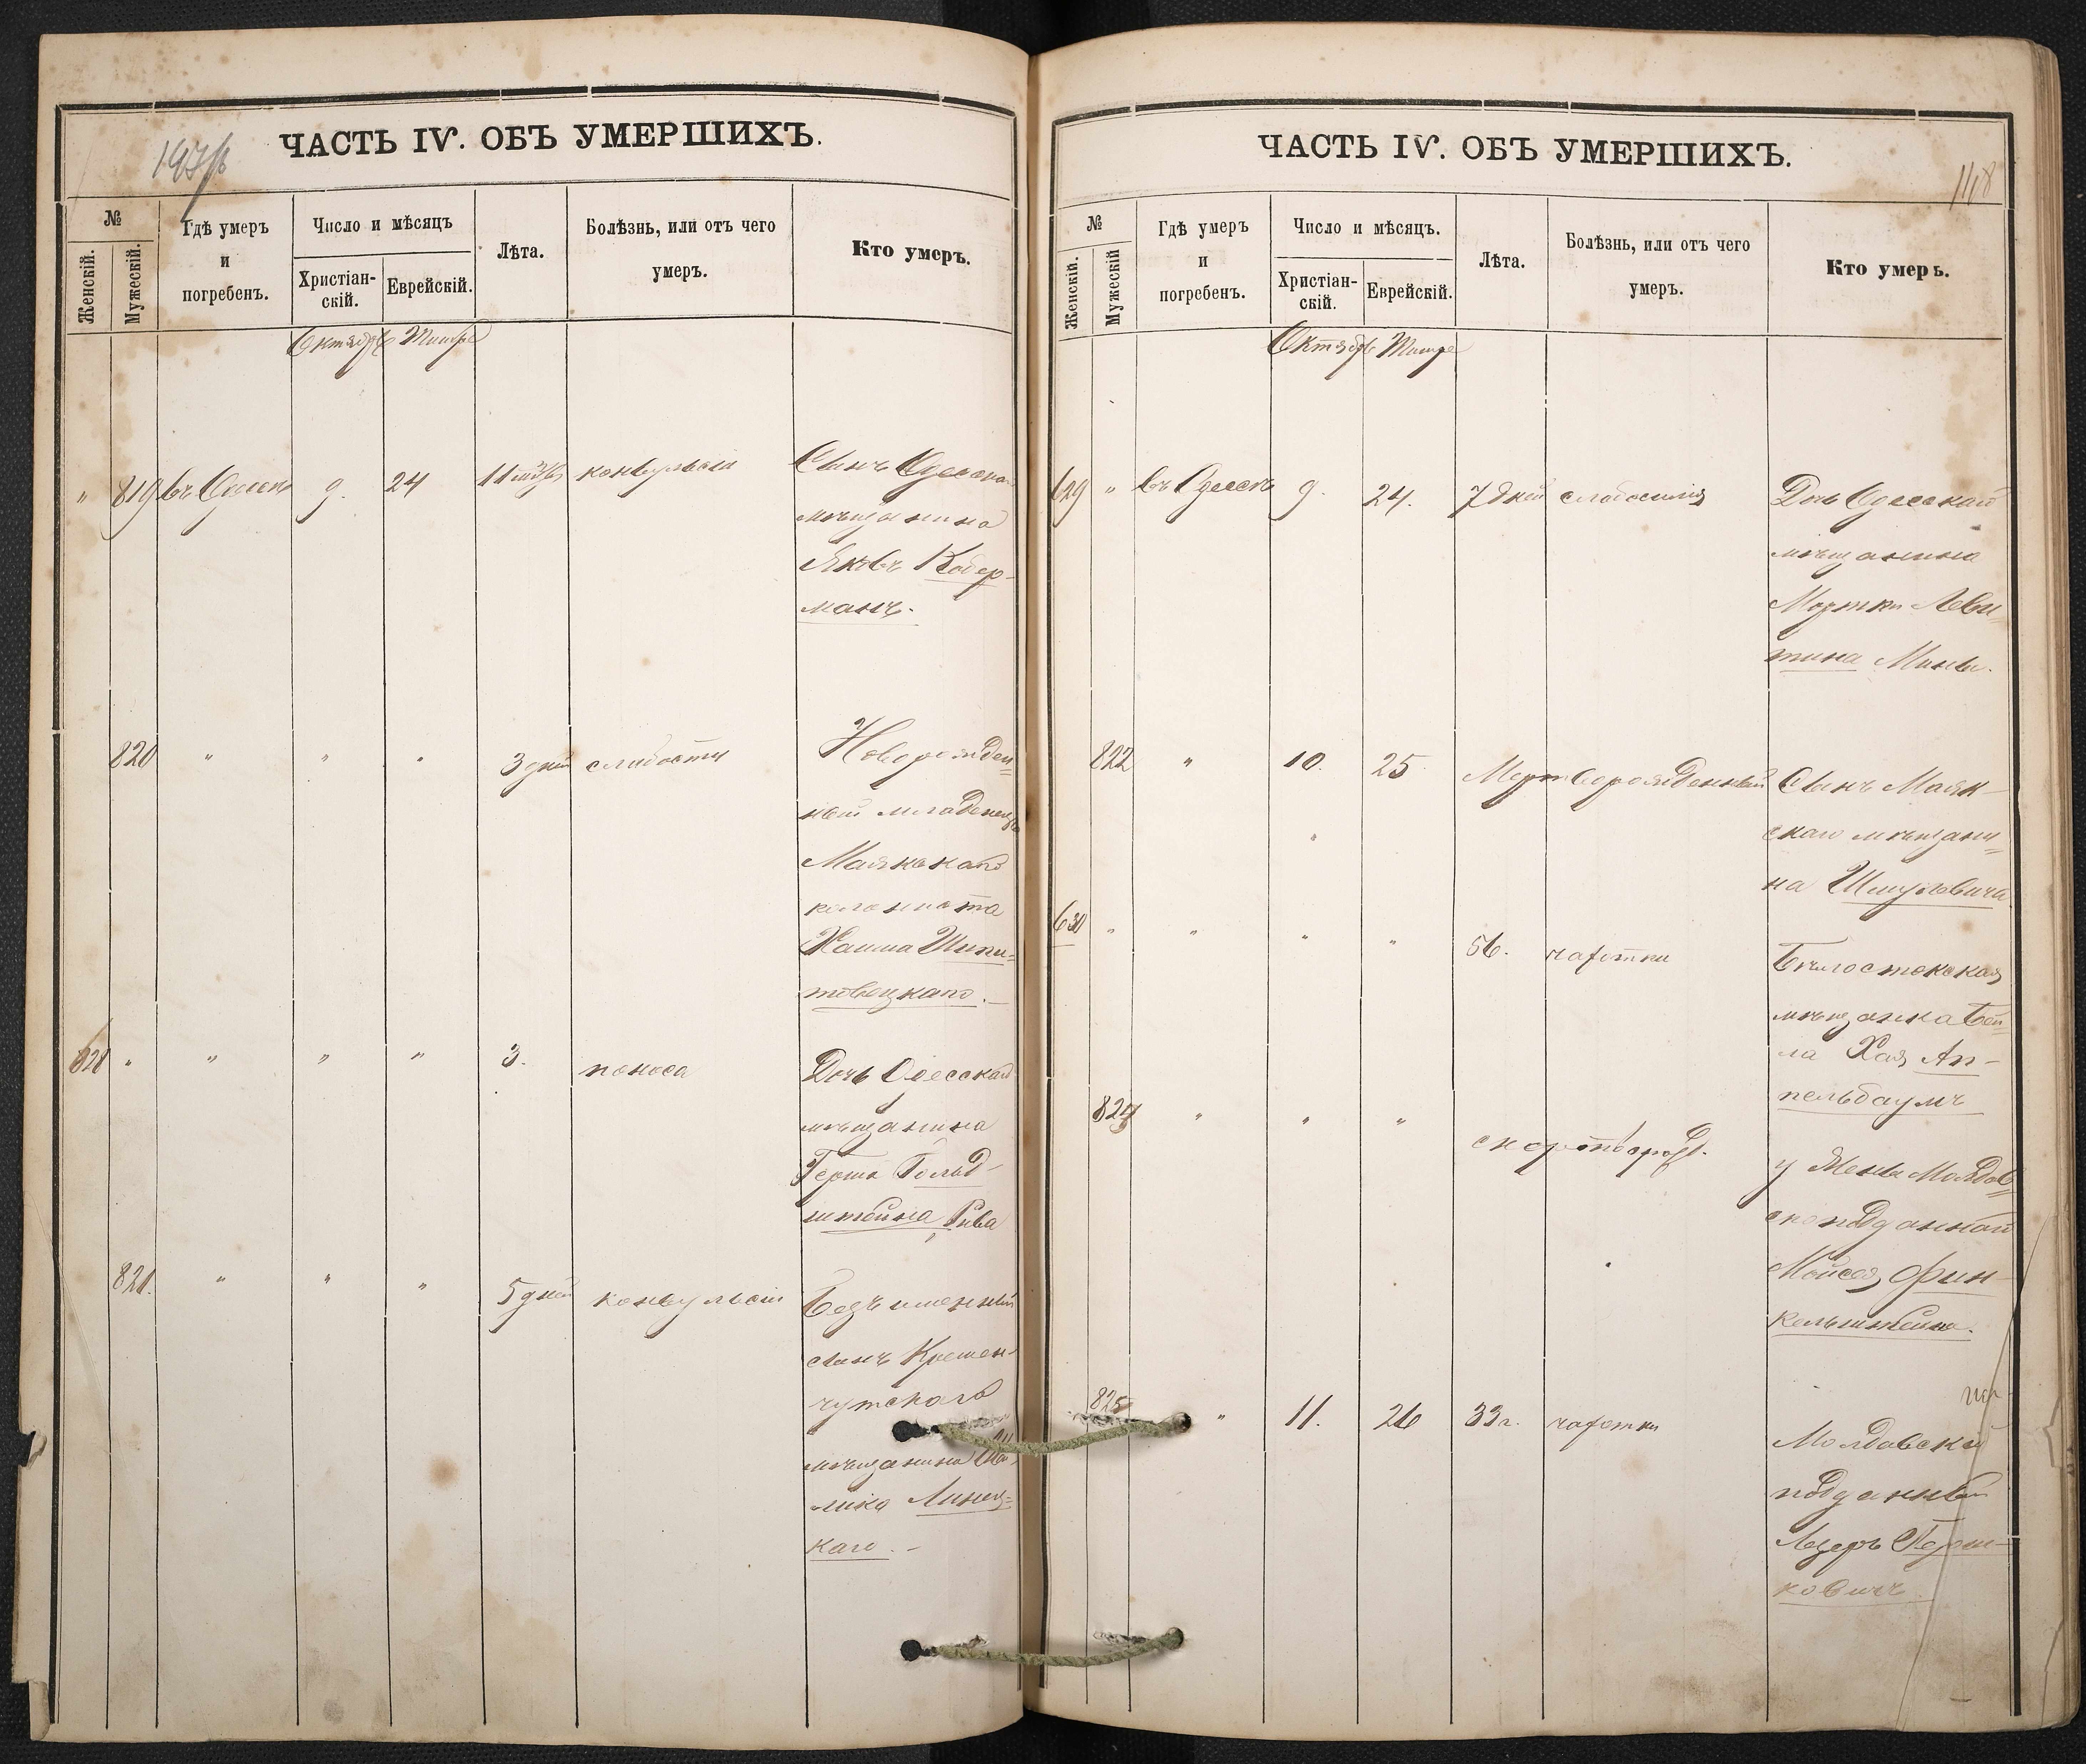 ЧАСТЬ IV. ОБЪ УМЕРШИХЪ.
№
Женскій.
Мужескій.
Гдѣ умеръ
и
погребенъ.
Число и мѣсяцъ
Христіан-
скій.
Еврейскій.
Лѣта.
Болѣзнь, или отъ чего
умеръ.
Кто умеръ.
Октябрь Тишре
" 819 въ Одессѣ 9. 24 конвульсіи Сынъ Одесскаго
мѣщанина
Яковъ Кодер-
манъ.
820 " " " 3 дней слабости Новорожден=
ный младенецъ
Маякскаго
колониста
Хаима Шпи=
товецкаго.—
628 " " " " 3. поноса Дочь Одесскаго
мѣщанина
Герша Гольд-
штейна, Рива
821. " " " 5 дней конвульсіи Безъименный
сынъ Кремен-
чугскаго
мѣщанина
Линец=
каго.—
ЧАСТЬ IV. ОБЪ УМЕРШИХЪ.
118
№
Женскій.
Мужескій
Гдѣ умеръ
и
погребенъ.
Число и мѣсяцъ.
Христіан-
скій.
Еврейскій.
Лѣта.
Болѣзнь, или отъ чего
умеръ.
Кто умеръ.
Октябрь Тишре
629 " въ Одессѣ 9. 24. 7 дней слабосилія Дочь Одесскаго
мѣщанина
Мортки Леви
тина Минья.
822 " 10. 25 Мертворожденный Сынъ Маяк-
скаго мѣщани=
на Шмулевича
630 " " " " 56. чахотки Бѣлостокская
мѣщанка Бей=
ла Хая Ап-
пельбаумъ
824 " " " у жены Молдав=
скоподданной
Мойсея Фин-
кельштейна.
825 " 11. 26 33 г. чахотки Молдавскій
подданный
Лейзеръ Герш-
ковичъ.